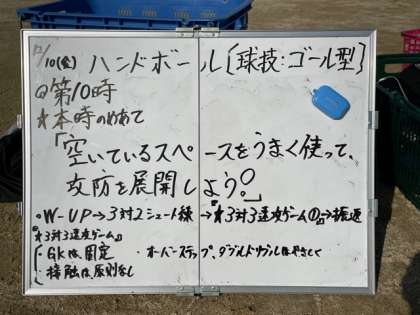 12/10(金) ハンドボール〔球技:ゴール型〕
◎第10時
★本時のめあて
「空いているスペースをうまく使って、
攻防を展開しよう!」
・W-UP→3対2シュート練→★3対3速攻ゲーム①→振返
『★3対3速攻ゲーム』
・GKは固定 ・オーバーステップ、ダブルドリブルはやさしく
・接触は原則なし